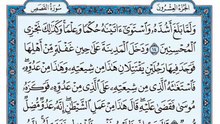 الجزء العشرون سورة القصص
ولما بلغ أشده واستوى آتيناه حكما وعلما وكذلك نجزي
المحسنين ودخل المدينة على حين غفلة من أهلها
فوجد فيها رجلين يقتتلان هذا من شيعته وهذا من عدوه
فاستغاثه الذي من شيعته على الذي من عدوه فوكزه
موسى فقضى عليه قال هذا من عمل الشيطان إنه عدو مضل